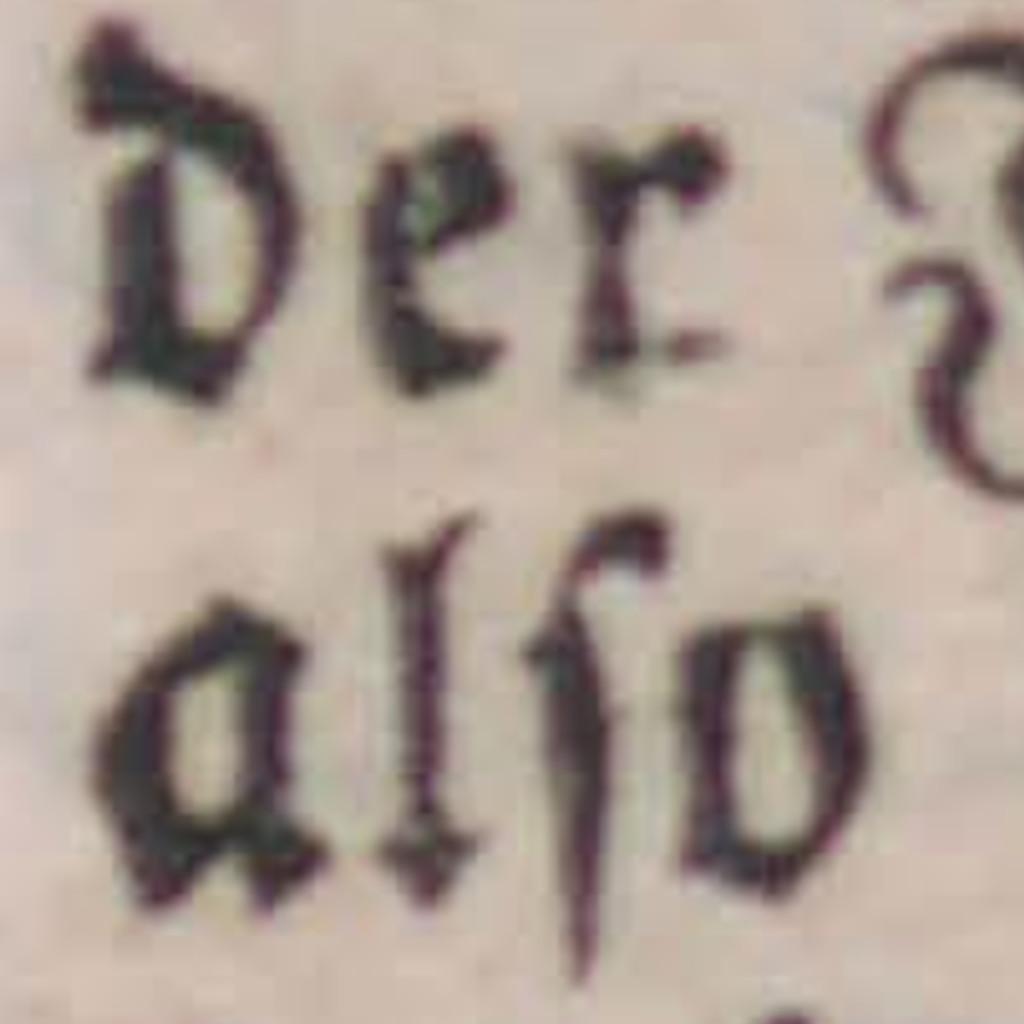 der
alſo